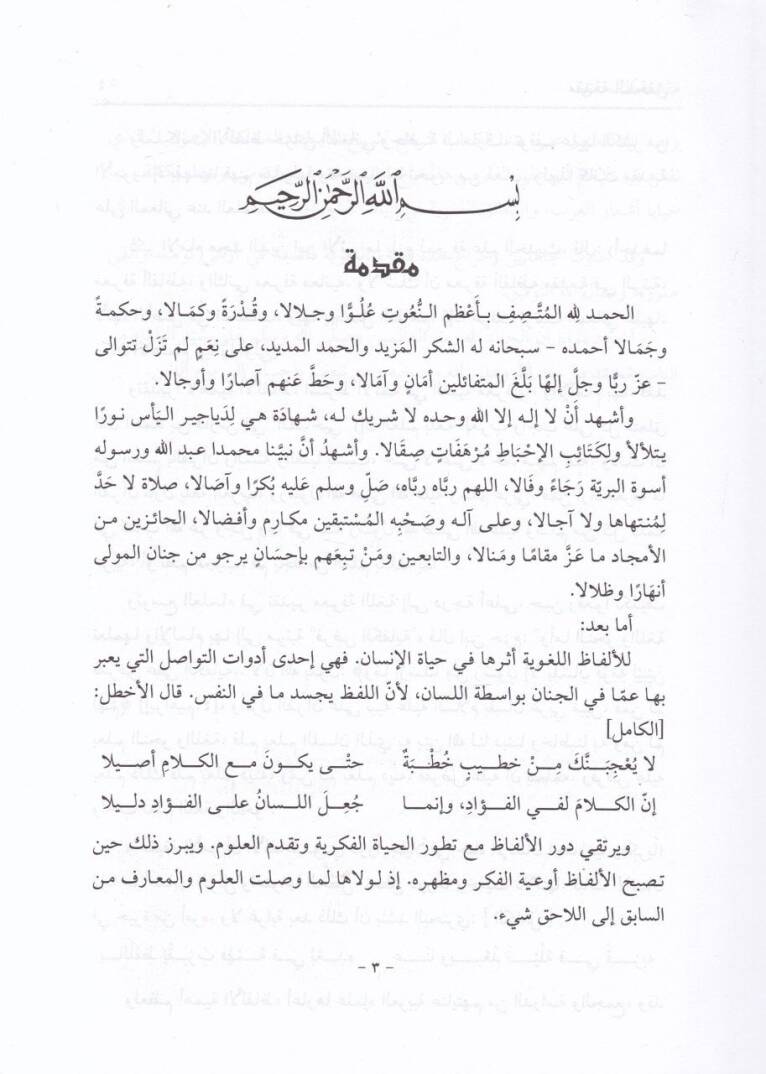 بِسْمِ اللَّهِ الرَّحْمَٰنِ الرَّحِيمِ
مقدمة
الحمد لله المُتَّصِفِ بأَعْظم النُّعُوتِ عُلُوًّا وجلالا، وقُدْرَةً وكمَالا، وحكمةً
وجَمَالا أحمده – سبحانه له الشكر المَزيد والحمد المديد، على نِعَمٍ لم تَزَلْ تتوالى
– عزّ ربًّا وجلَّ إلهًا بَلَّغَ المتفائلين أمَانٍ وآمَالا، وحَطَّ عَنهم آصارًا وأوجالا.
وأشهد أَنْ لا إله إلا الله وحده لا شريك له، شهادة هي لِدَياجير اليَأس نورًا
يتلألأ ولكَتَائِبِ الإحْبَاط مُرْهَفَاتٍ صِقَالا. وأشهدُ أنَّ نبيَّنا محمدا عبد الله ورسوله
أسوة البريّة رَجَاءً وفَالا، اللهم ربّاه ربّاه، صَلِّ وسلم عَليه بُكرًا وآصَالا، صلاة لا حَدَّ
لِمُنتهاها ولا آجالا، وعلى آله وصَحْبِه المُسْتبقين مكارِم وأفضالا، الحائزين من
الأمجاد ما عَزَّ مقامًا ومَنالا، والتابعين ومَنْ تبِعَهم بإحسَانٍ يرجو من جنان المولى
أنهَارًا وظلالا.
أما بعد:
للألفاظ اللغوية أثرها في حياة الإنسان. فهي إحدى أدوات التواصل التي يعبر
بها عمّا في الجنان بواسطة اللسان، لأنّ اللفظ يجسد ما في النفس. قال الأخطل:
[الكامل]
لا يُعْجِبَنَّكَ مِنْ خطيبٍ خُطْبَةٌ حتّى يكونَ مع الكلامِ أصيلا
إنّ الكلامَ لفي الفؤادِ، وإنما جُعِلَ اللسانُ على الفؤادِ دليلا
ويرتقي دور الألفاظ مع تطور الحياة الفكرية وتقدم العلوم. ويبرز ذلك حين
تصبح الألفاظ أوعية الفكر ومظهره. إذ لولاها لما وصلت العلوم والمعارف من
السابق إلى اللاحق شيء.
– ٣ –